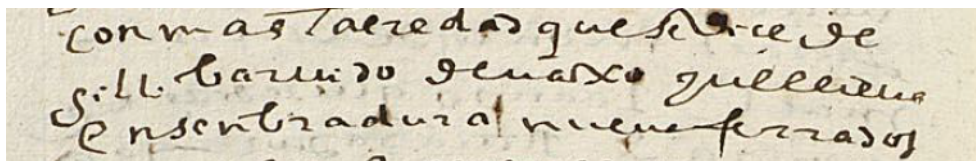 con mas la eredad que se dice de
gilli barrido de vaixo que lleva
en senbradura nueve ferrados